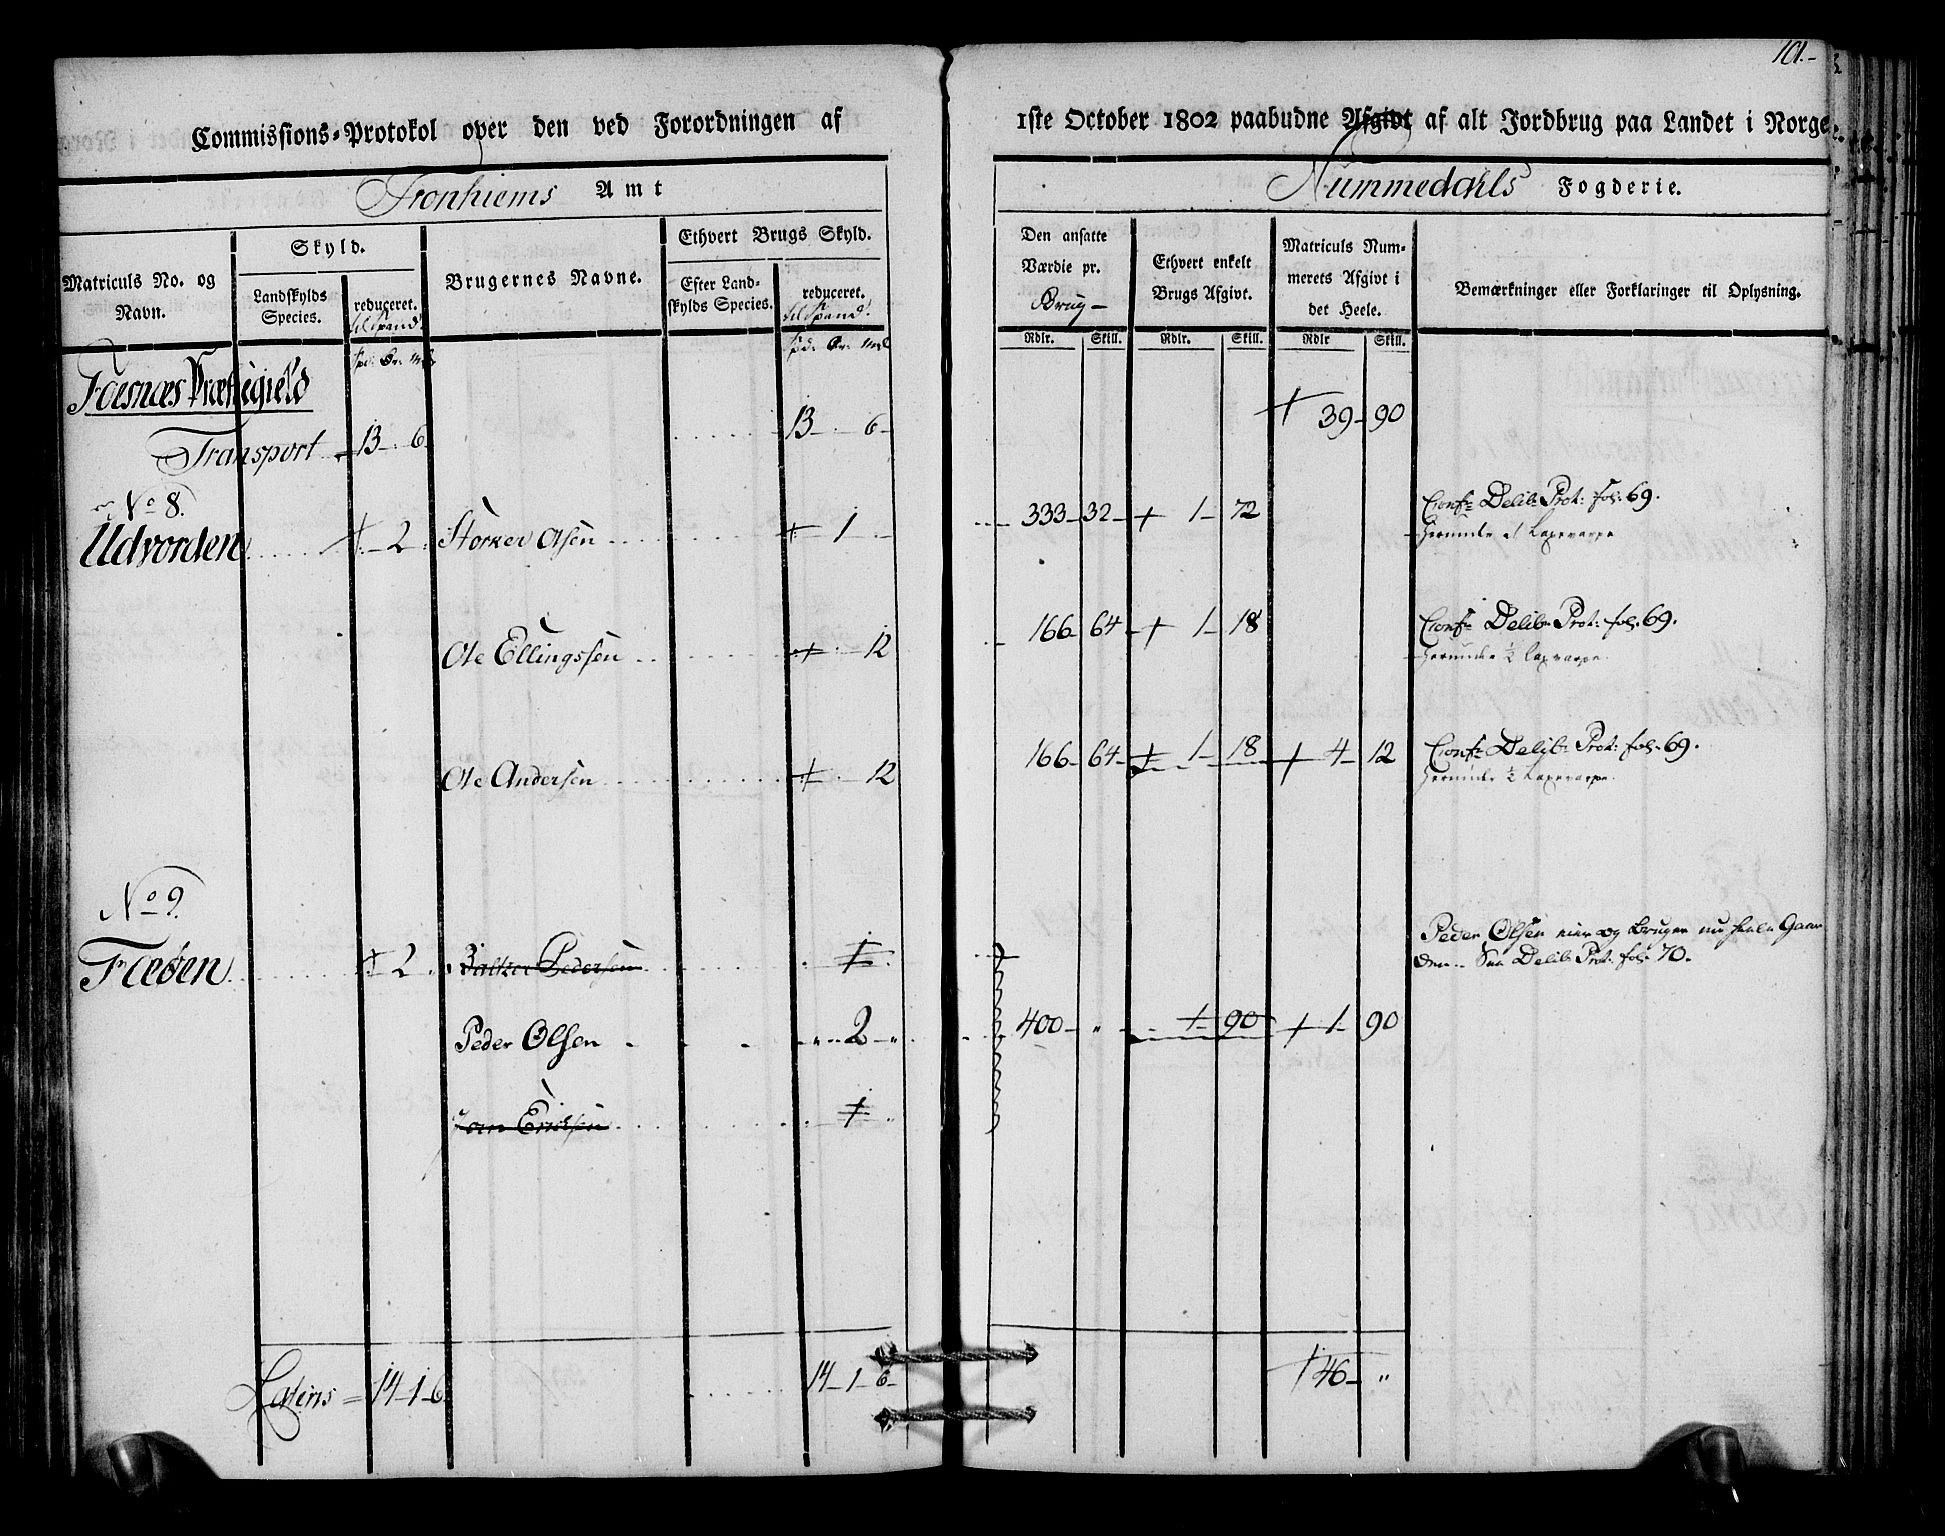 101.-
Commissions-Protokol over den ved Forordningen af 1ste October 1802 paabudne Afgivt af alt Jordbrug paa Landet i Norge.
Tronhiems Amt Nummedahls Fogderie.
Matriculs No. og Navn.
Skyld.
Landskylds Species.
reduceret.
til Spand:
Spd. Ør. Mrk
Brugernes Navne.
Ethvert Brugs Skyld.
Efter Landskylds Species.
reduceret.
til Spand:
Spd. Ør. Mrk
Den ansatte Værdie pr. Brug-
Rdlr. Skill.
Ethvert enkelt Brugs Afgivt.
Rdlr. Skill.
Matriculs Nummerets Afgivt i det Heele.
Rdlr Skill.
Bemærkninger eller Forklaringer til Oplysning.
Foesnæs Præstegield
Transport 13 . 6 13 . 6 39 90
No 8.
Udvorden 2 Storker Olsen 1 333 32 1 72 Confr Delib: Prot: fol. 69.
herunder et Laxevarpe
Ole Ellingssen 12 166 64 1 18 Confr Delib: Prot: fol. 69.
herunder ½ Laxvarpe.
Ole Andersen 12 166 64 1 18 4 12 Confr Delib: Prot: fol. 69.
herunder ½ Laxevarpe.
No 9.
2 Pedersen 1 Peder Olsen eier og bruger nu heele Gaar
den. See Delib: Prot: fol. 70.
Peder Olsen 2 400 " 1 90 1 90
Ericksen 1
Lateris = 14 1 6 14 1 6 46 "